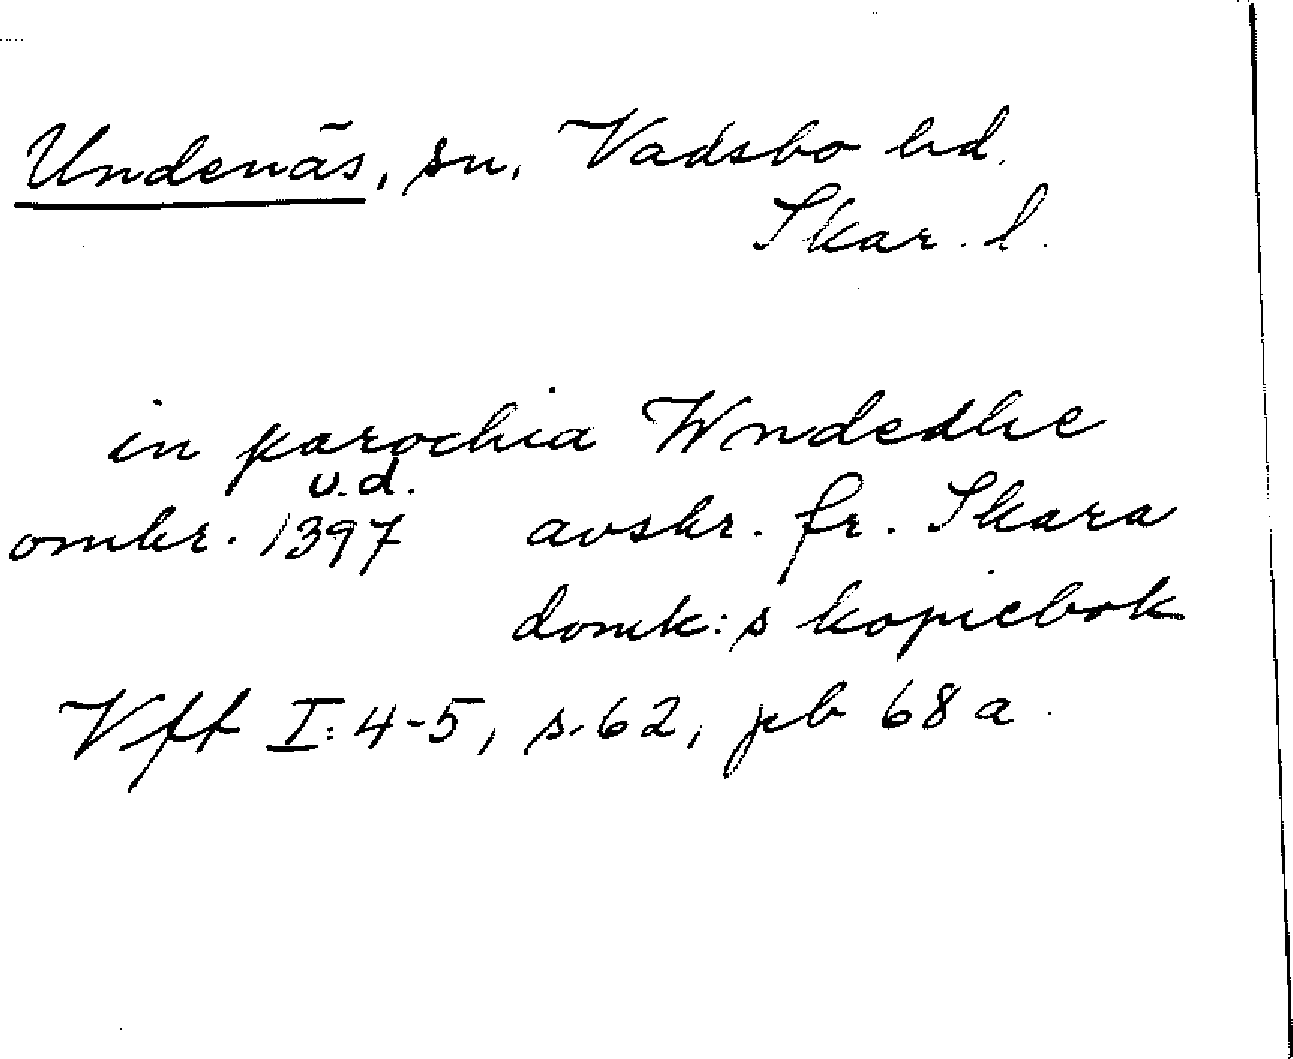 Undenäs, sn, Vadsbo hd.
Skar. l.
in parochia Wndedhe
u.d.
omkr. 1397 avskr. fr. Skara
domk:s kopiebok
Vft I:4-5, s.62, pb 68 a.